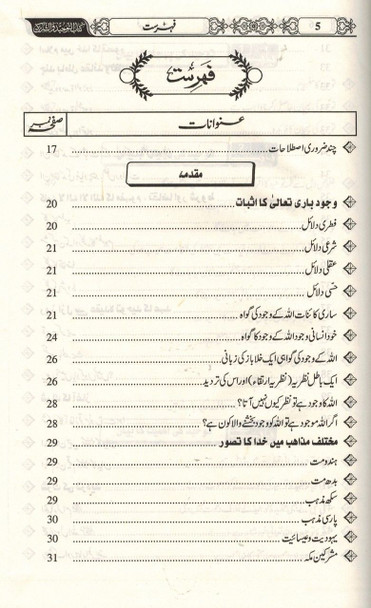 5
فہرست
فہرست
عنوانات
صفحہ نمبر
چند ضروری اصطلاحات 17
مقدمہ
وجود باری تعالیٰ کا اثبات 20
فطری دلائل 20
شرعی دلائل 21
عقلی دلائل 21
حسی دلائل 21
ساری کائنات اللہ کے وجود کی گواہ 21
خود انسانی وجود اللہ کے وجود کا گواہ 24
اللہ کے وجود کی گواہی ایک خلا باز کی زبانی 26
ایک باطل نظریہ (نظریہ ارتقاء) اور اس کی تردید 26
اللہ کا وجود ہے تو نظر کیوں نہیں آتا؟ 28
اگر اللہ موجود ہے تو اللہ کو وجود بخشنے والا کون ہے؟ 28
مختلف مذاہب میں خدا کا تصور 29
ہندو مت 29
بدھ مت 29
سکھ مذہب 29
پارسی مذہب 30
یہودیت و عیسائیت 30
مشرکین مکہ 31